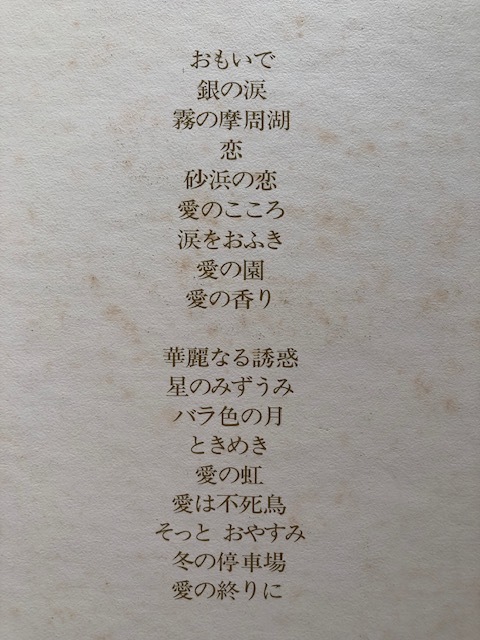 おもいで
銀の涙
霧の摩周湖
恋
砂浜の恋
愛のこころ
涙をおふき
愛の園
愛の香り
華麗なる誘惑
星のみずうみ
バラ色の月
ときめき
愛の虹
愛は不死鳥
そっと おやすみ
冬の停車場
愛の終りに